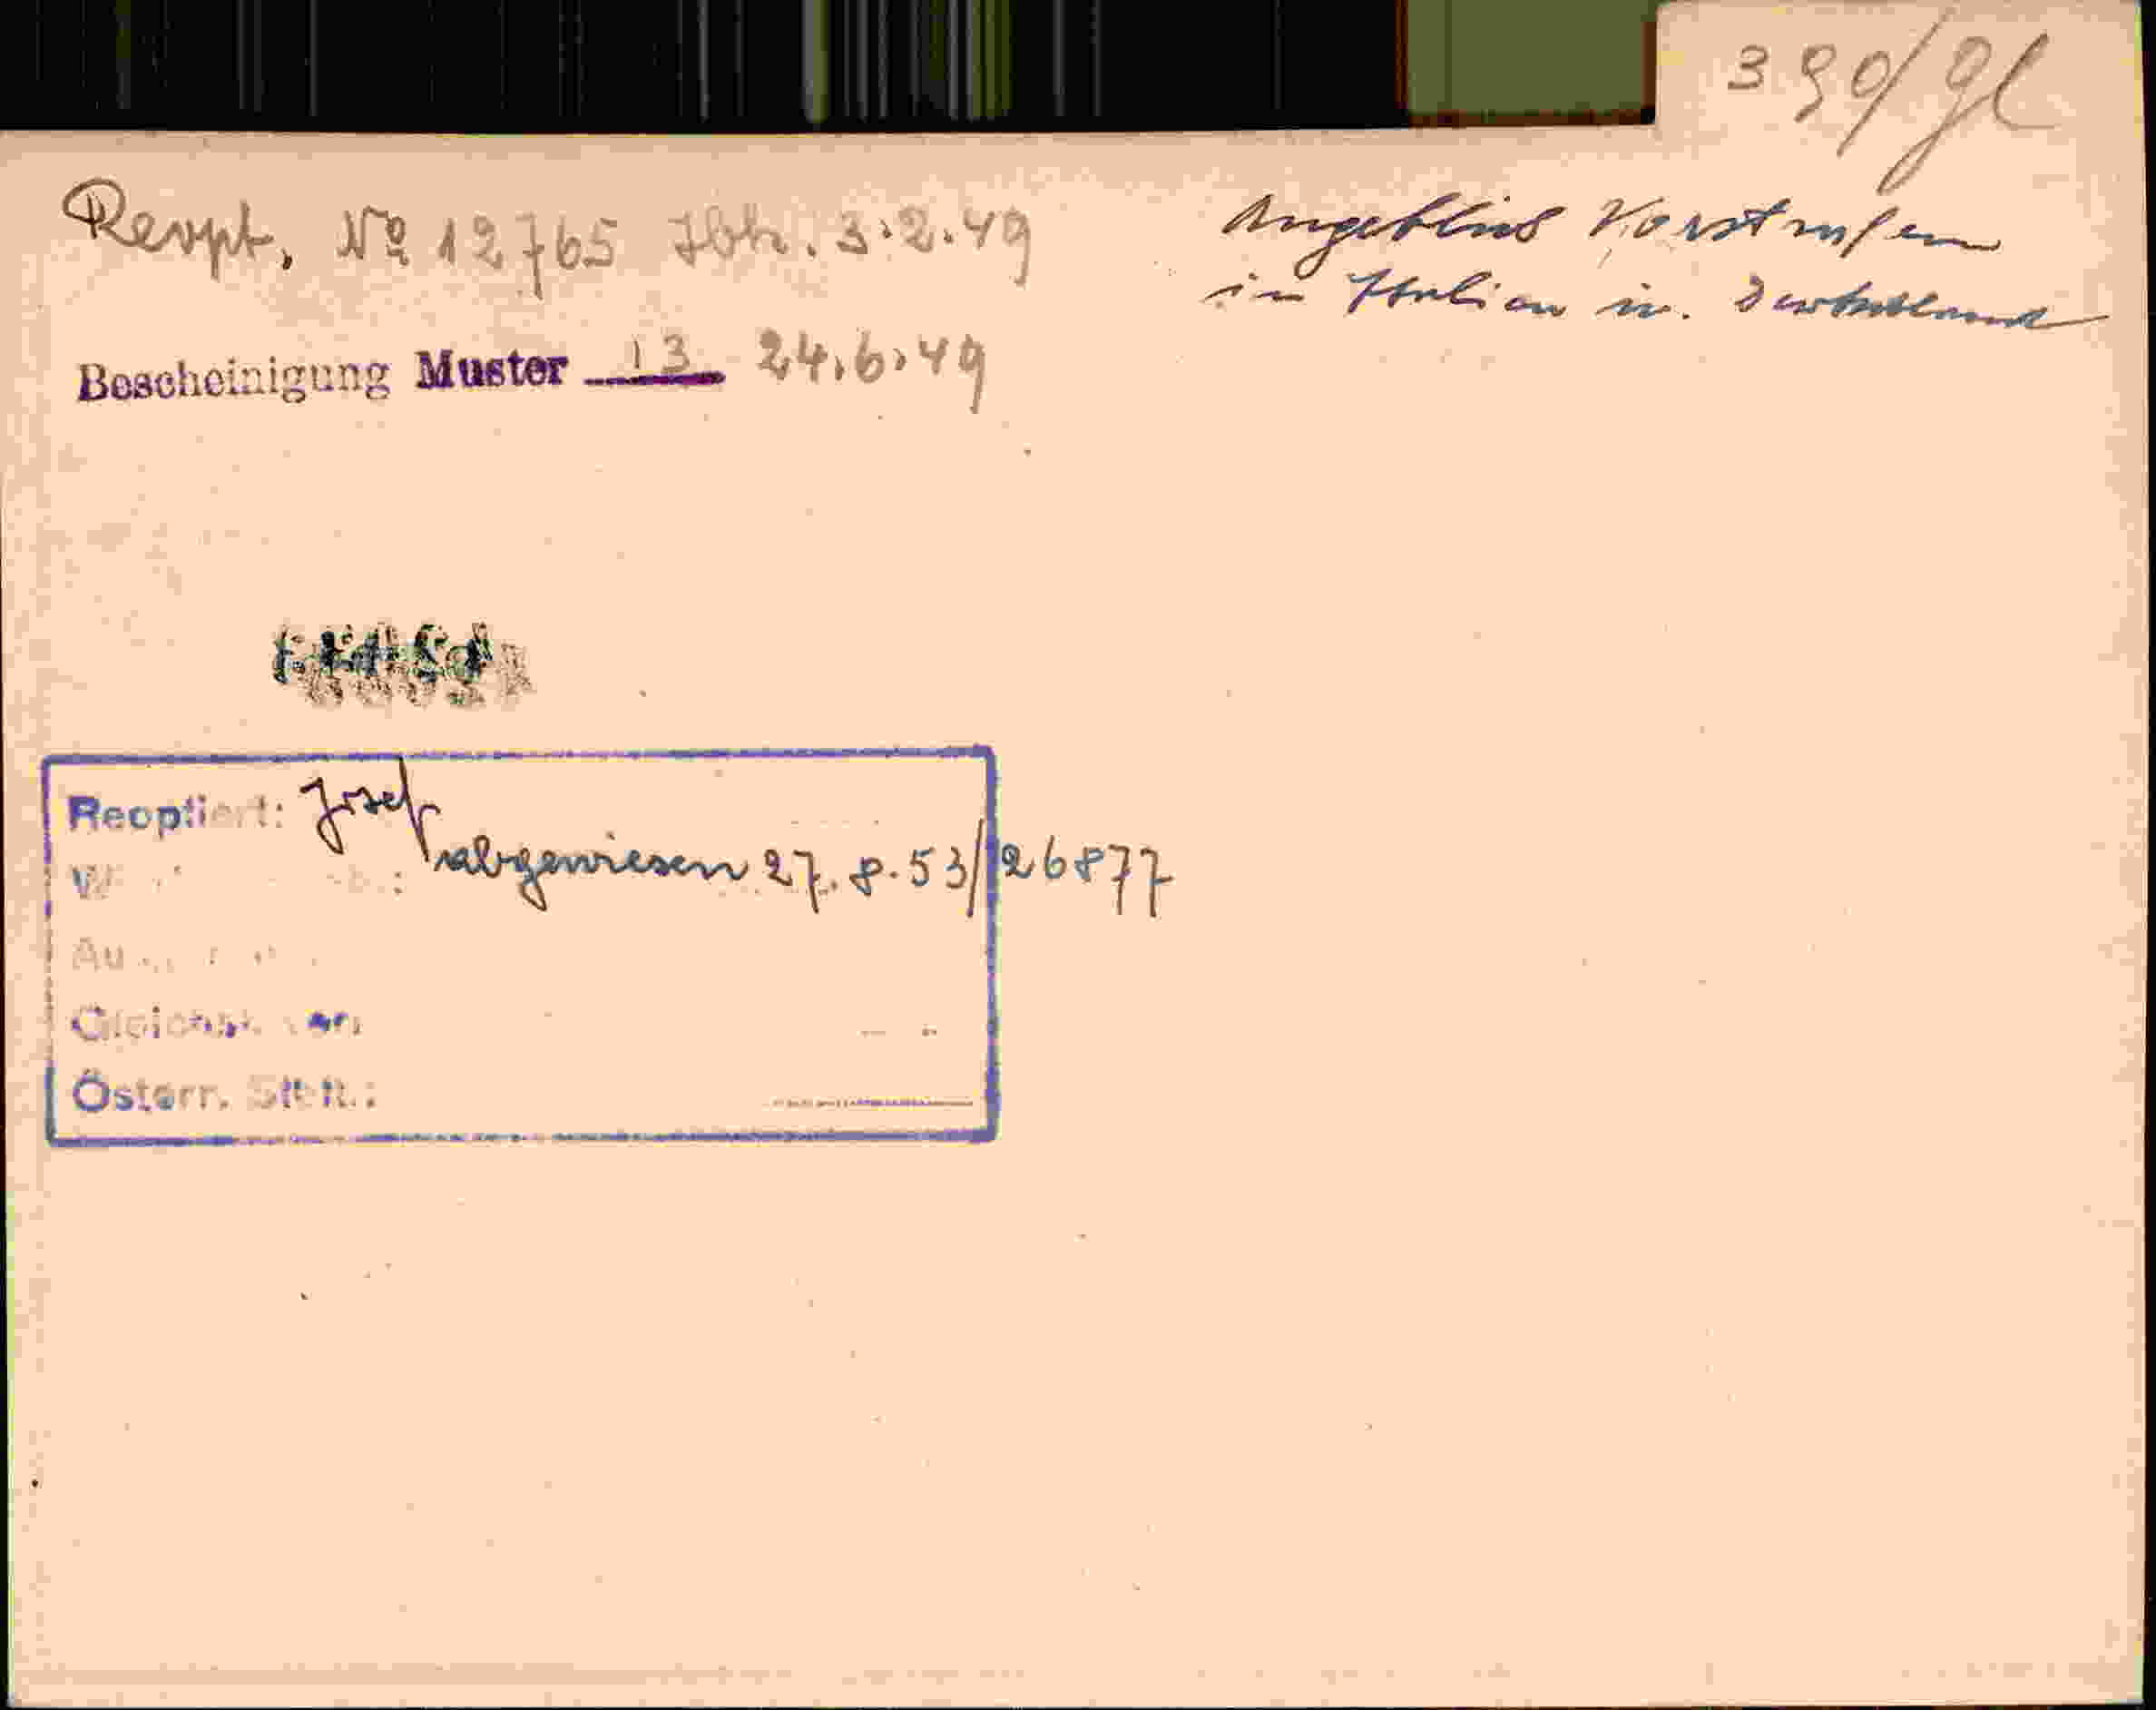 390/gl
Reopt. № 12765 Ibk. 3.2.49
Angeblich Vorstrafen
in Italien u. Deutschland
Bescheinigung Muster 13 24.6.49
Reoptiert: Josef
abgewiesen 27.8.53/26877
Österr.